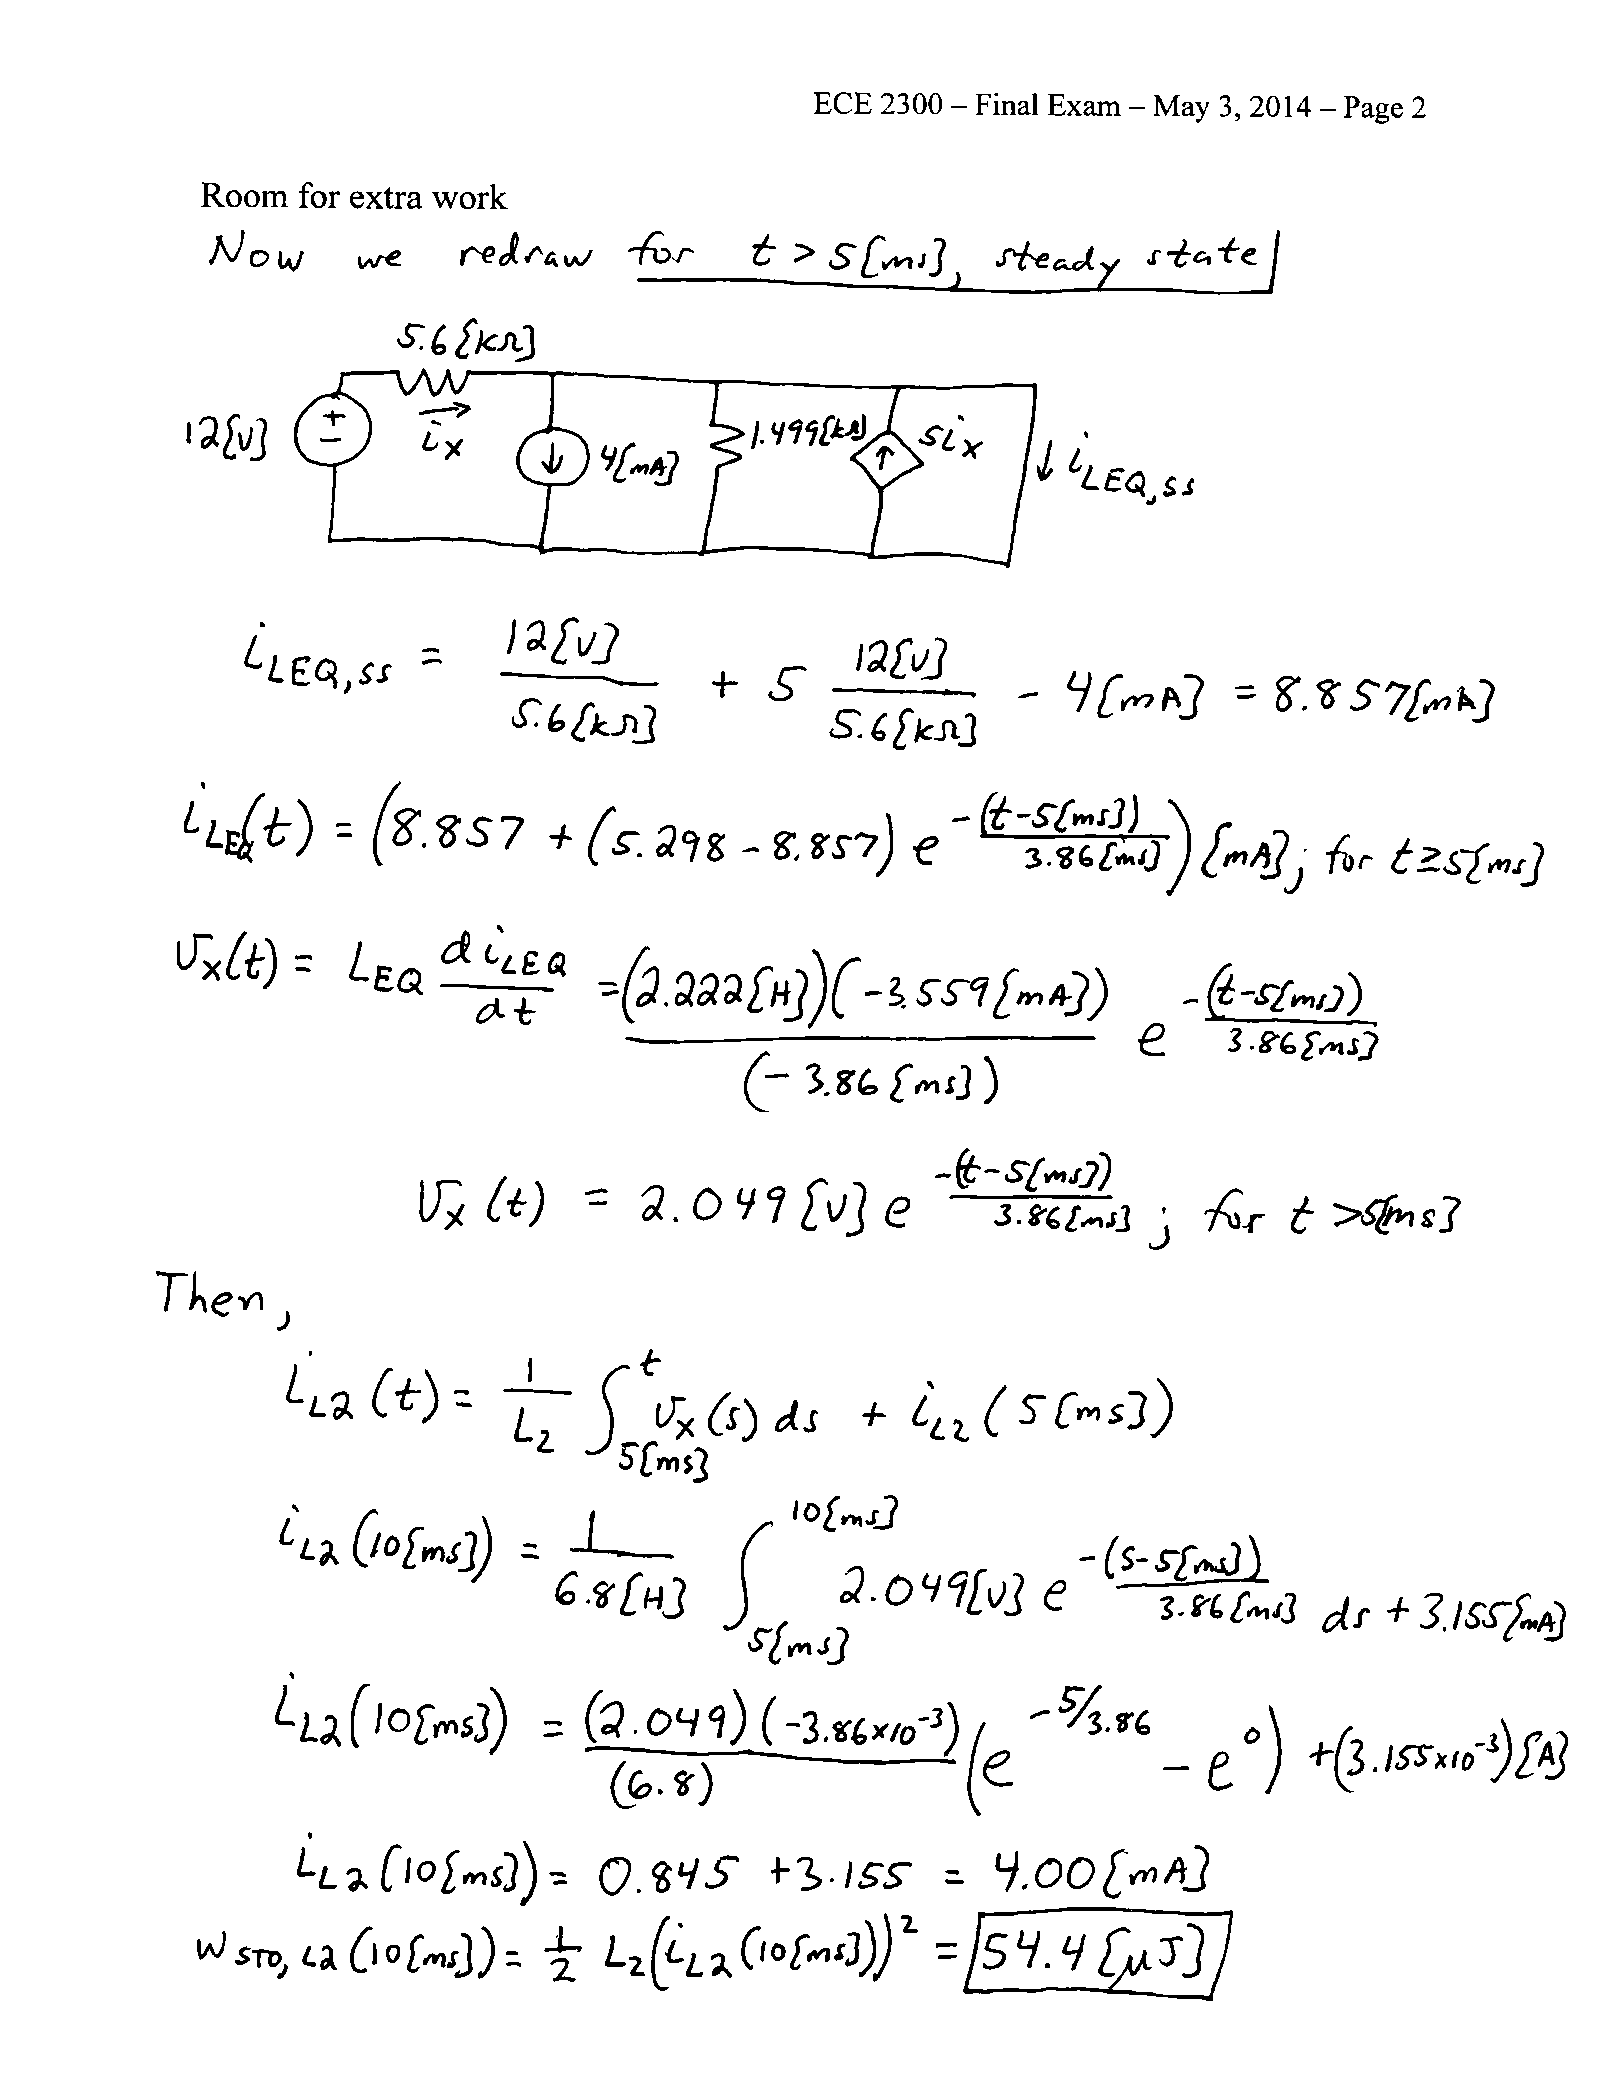 ECE 2300 – Final Exam – May 3, 2014 – Page 2
Room for extra work
Now we redraw for t > 5[ms], steady state
5.6[kΩ]
12[V] + − iX 4[mA] 1.499[kΩ] 5iX iLEQ,SS
iLEQ,SS = 12[V] / 5.6[kΩ] + 5 12[V] / 5.6[kΩ] - 4[mA] = 8.857[mA]
iLEQ(t) = (8.857 + (5.298 - 8.857) e^(-(t-5[ms]) / 3.86[ms])) [mA]; for t≥5[ms]
vX(t) = LEQ d iLEQ / dt = (2.222[H])(-3.559[mA]) / (-3.86[ms]) e^(-(t-5[ms]) / 3.86[ms])
vX(t) = 2.049[V] e^(-(t-5[ms]) / 3.86[ms]); for t >5[ms]
Then,
iL2(t) = 1 / L2 ∫_5[ms]^t vX(s) ds + iL2(5[ms])
iL2(10[ms]) = 1 / 6.8[H] ∫_5[ms]^10[ms] 2.049[V] e^(-(s-5[ms]) / 3.86[ms]) ds + 3.155[mA]
iL2(10[ms]) = (2.049)(-3.86x10^-3) / (6.8) (e^(-5/3.86) - e^0) + (3.155x10^-3)[A]
iL2(10[ms]) = 0.845 + 3.155 = 4.00[mA]
wSTO,L2(10[ms]) = 1/2 L2(iL2(10[ms]))^2 = 54.4[μJ]